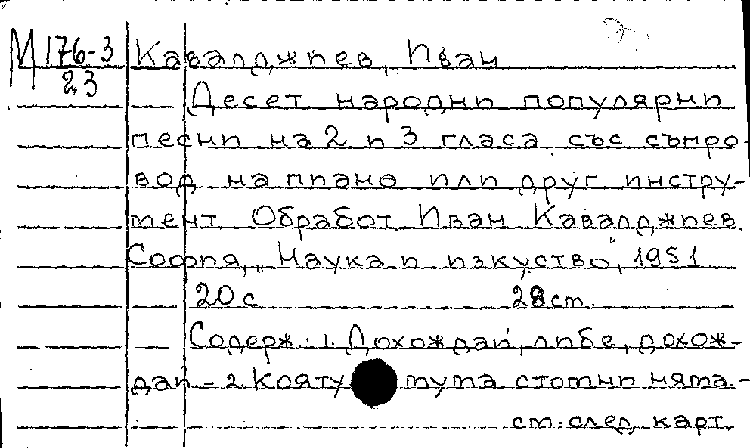 М 176-3 Кавалджиев, Иван
23
Десет народни популярни
песни на 2 и 3 гласа със съпро-
вод на пиано или друг инстру-
мент. Обработ. Иван Кавалджиев.
София, „Наука и изкуство", 1951
20 с. 28 ст.
Содерж.: 1. Дохождай, либе, дохож-
дай - 2. Кояту тута стотни няма -
ст. след. карт.